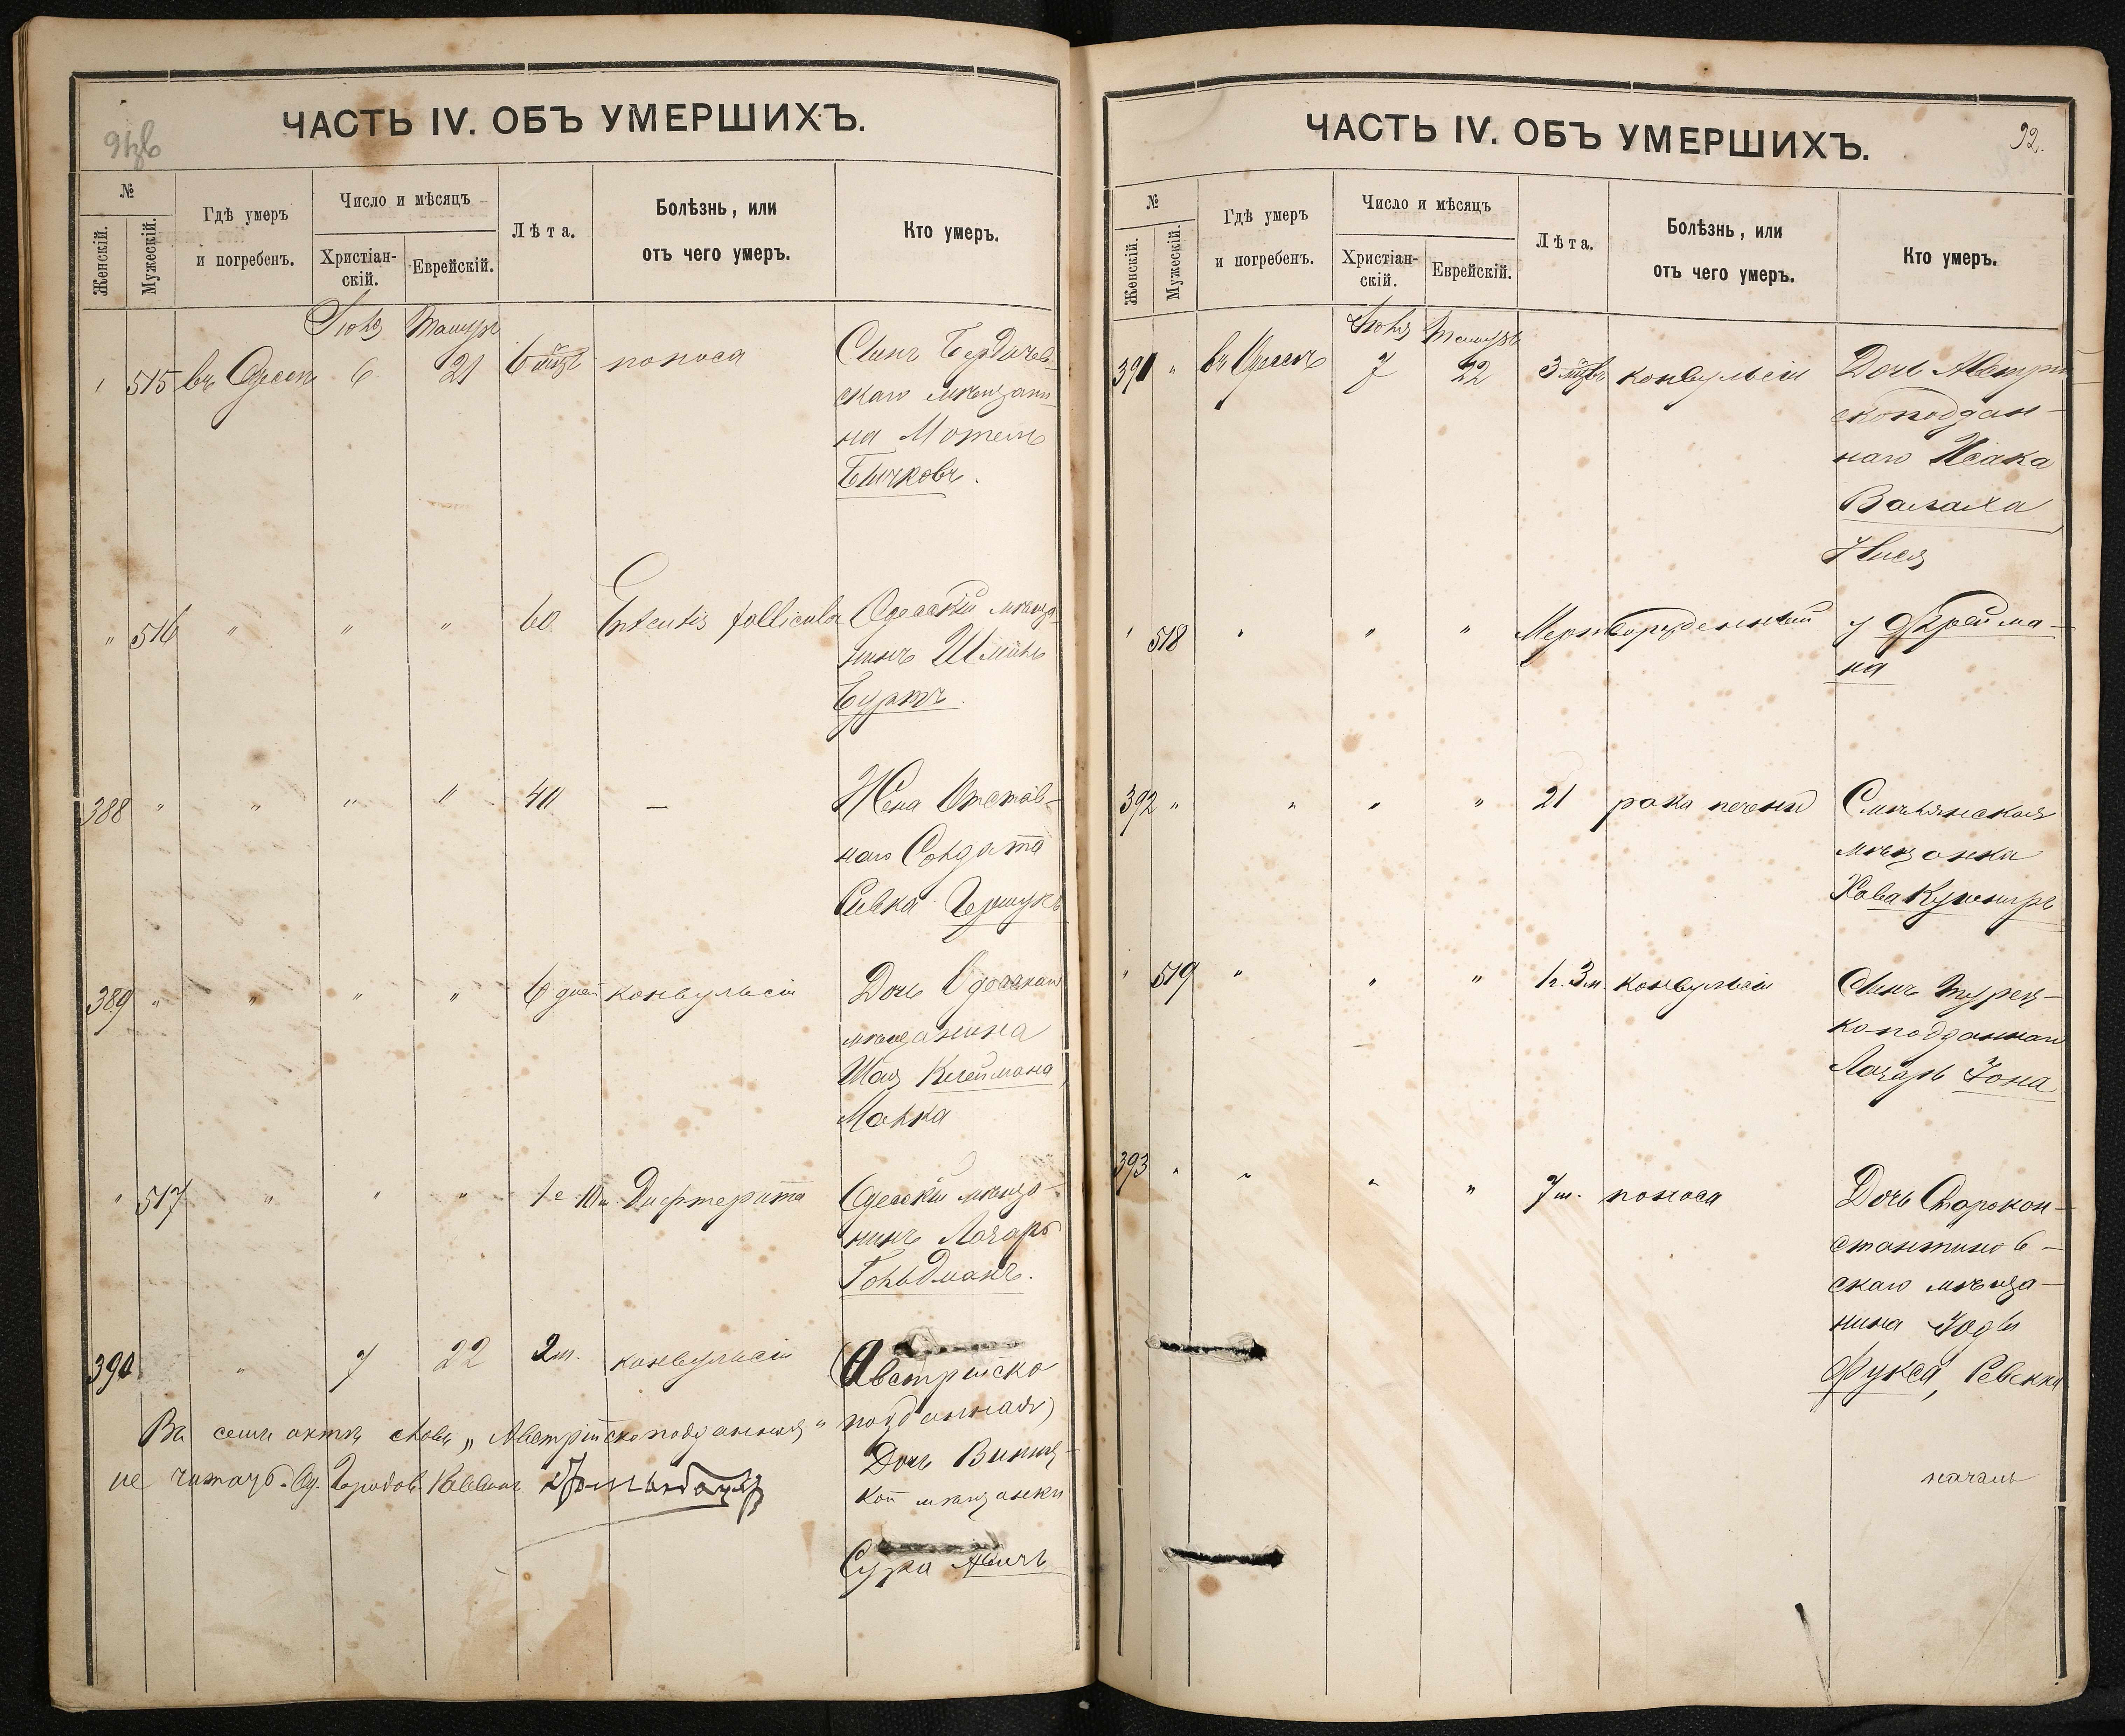 ЧАСТЬ IV. ОБЪ УМЕРШИХЪ.
№
Женскій.
Мужескій.
Гдѣ умеръ
и погребенъ.
Число и мѣсяцъ
Христіан-
скій.
Еврейскій.
Лѣта.
Болѣзнь, или
отъ чего умеръ.
Кто умеръ.
Іюля
515 въ Одессѣ 6 21 6 мѣц поноса Сынъ Бердичев-
скаго мѣщани-
на Мотель
Бычковъ.
" 516 " " " 60 follicular Одесскій мѣща-
нинъ
Буртъ.
388 " " " " 40 — Жена Отстав-
наго Солдата
Ривка
389 " " " " 6 дней конвульсіи Дочь Одесскаго
мѣщанина
Шая Клеймана,
Малка
" 517 " " " 1 г. 10 м. Дифтерита Одесскій мѣща-
нинъ Лазарь
Гольдманъ.
390 " 7 22 2 м. конвульсіи (Австрійско
подданная)
Дочь
кой мѣщанки
Сура
Въ семъ актѣ слова „Австрійскоподданная"
не читать. Од. Городов. Раввинъ
ЧАСТЬ IV. ОБЪ УМЕРШИХЪ.
92.
№
Женскій.
Мужескій.
Гдѣ умеръ
и погребенъ.
Число и мѣсяцъ
Христіан-
скій.
Еврейскій.
Лѣта.
Болѣзнь, или
отъ чего умеръ.
Кто умеръ.
Іюля
391 " въ Одессѣ 7 22 3 мѣц конвульсіи Дочь Австрій-
скоподдан-
наго Исака
Валаха,
518 " " " Мертворожденный у Фрейма-
на
392 " " " " 21 рака печени
мѣщанка
Хава Кушниръ
" 519 " " " 1 г. 3 м. конвульсіи Сынъ Турец-
коподданнаго
Лазарь Іона
393 " " " " 7 м. поноса Дочь Старокон-
стантинов-
скаго мѣща-
нина
Фукса, Ревекка